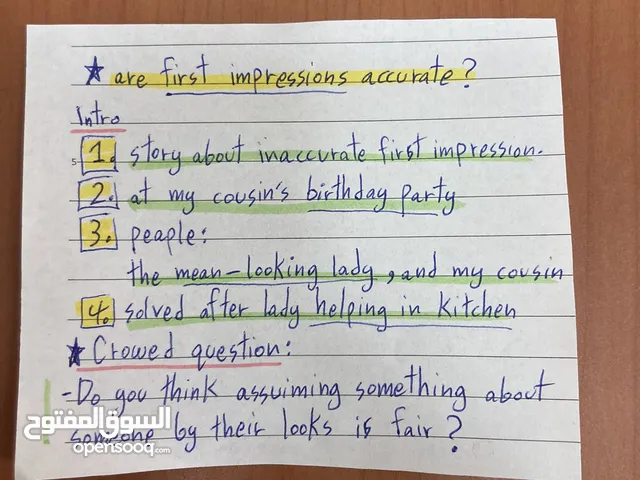 ★ are first impressions accurate?
Intro
1. story about inaccurate first impression.
2. at my cousin's birthday party
3. peaple:
the mean-looking lady, and my cousin
4. solved after lady helping in kitchen
★ Crowed question:
-Do you think assuiming something about
someone by their looks is fair?
السوق المفتوح
opensooq.com